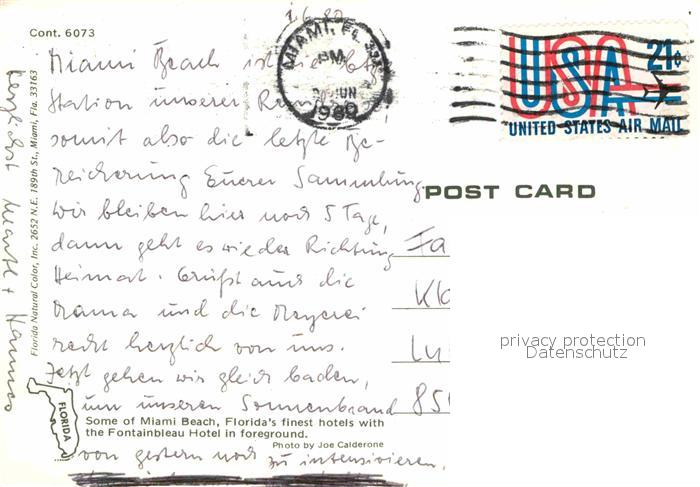 1.6.80
Cont. 6073
MIAMI, FL 331
PM
JUN
1980
USA 21¢
UNITED STATES AIR MAIL
POST CARD
Miami Beach ist die letzte
Station unserer
somit also die letzte Be-
reicherung Euerer Sammlung
Wir bleiben hier noch 5 Tage,
dann geht es wieder Richtung
Heimat. Grüßt auch die
Mama und die
recht herzlich von uns.
Jetzt gehen wir gleich baden,
um unseren Sonnenbrand
von gestern noch zu intensivieren.
herzlichst + Hannes
Florida Natural Color, Inc. 2652 N.E. 189th St., Miami, Fla. 33163
FLORIDA
Some of Miami Beach, Florida's finest hotels with
the Fontainbleau Hotel in foreground.
Photo by Joe Calderone
Fa
Klo
Lu
85
privacy protection
Datenschutz